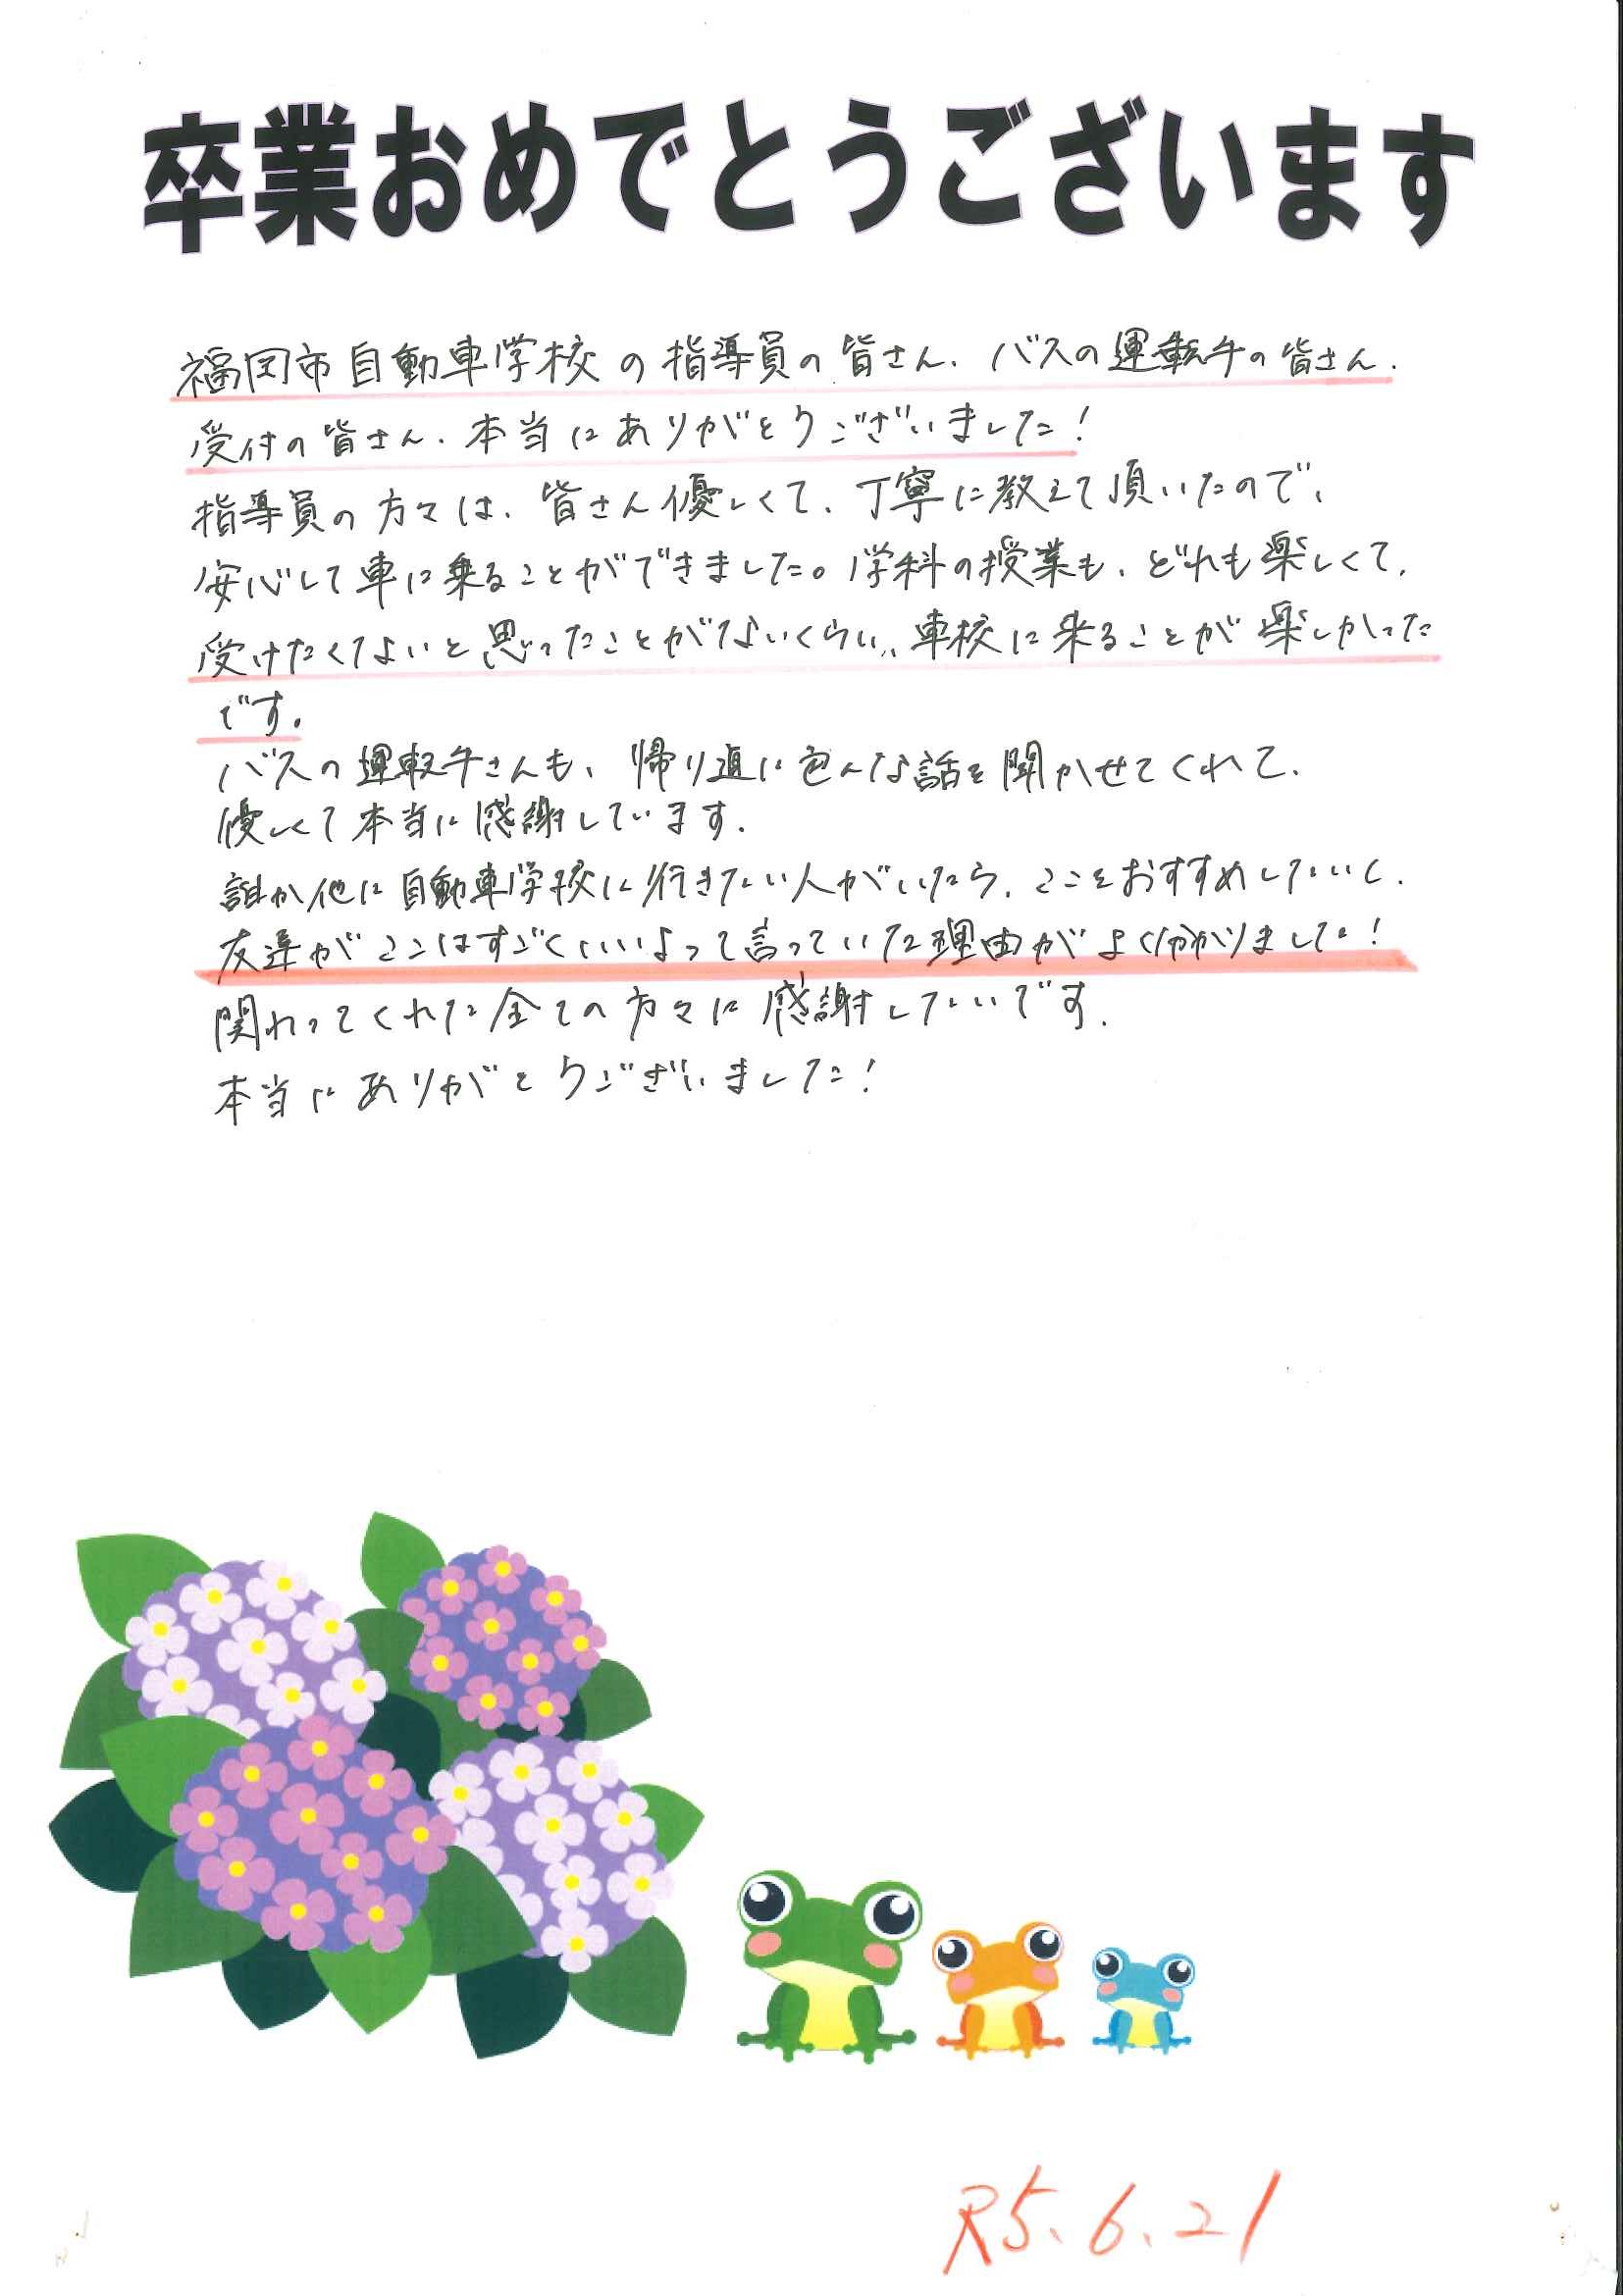 卒業おめでとうございます
福岡市自動車学校の指導員の皆さん、バスの運転手の皆さん、
受付の皆さん、本当にありがとうございました!
指導員の方々は、皆さん優しくて、丁寧に教えて頂いたので、
安心して車に乗ることができました。学科の授業も、どれも楽しくて、
受けたくないと思ったことがないくらい、車校に来ることが楽しかった
です。
バスの運転手さんも、帰り道に色んな話を聞かせてくれて、
優しくて本当に感謝しています。
誰か他に自動車学校に行きたい人がいたら、ここをおすすめしたいし、
友達がここはすごくいいよって言っていた理由がよく分かりました!
関わってくれた全ての方々に感謝したいです。
本当にありがとうございました!
R5.6.21